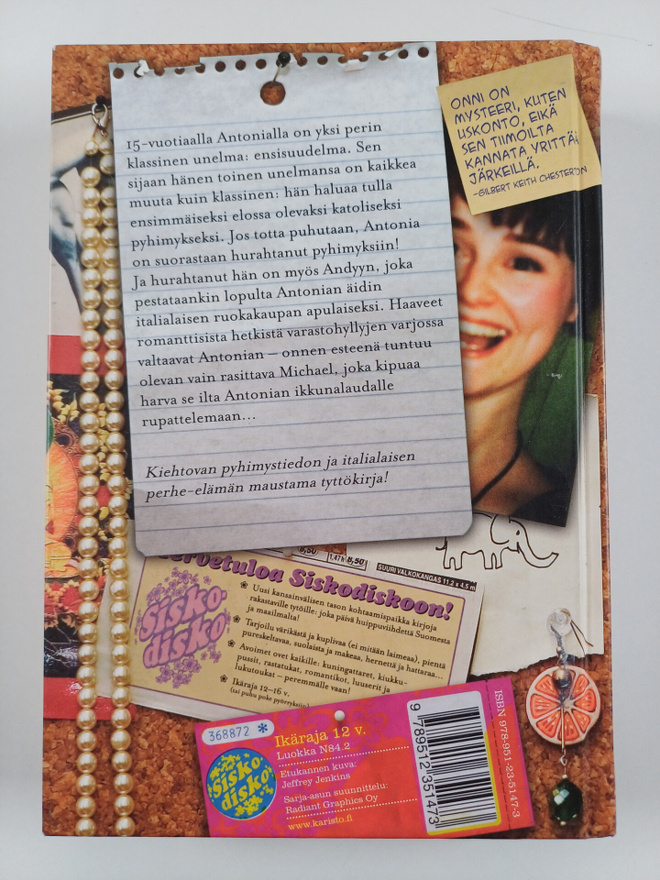 15-vuotiaalla Antonialla on yksi perin
klassinen unelma: ensisuudelma. Sen
sijaan hänen toinen unelmansa on kaikkea
muuta kuin klassinen: hän haluaa tulla
ensimmäiseksi elossa olevaksi katoliseksi
pyhimykseksi. Jos totta puhutaan, Antonia
on suorastaan hurahtanut pyhimyksiin!
Ja hurahtanut hän on myös Andyyn, joka
pestataankin lopulta Antonian äidin
italialaisen ruokakaupan apulaiseksi. Haaveet
romanttisista hetkistä varastohyllyjen varjossa
valtaavat Antonian – onnen esteenä tuntuu
olevan vain rasittava Michael, joka kipuaa
harva se ilta Antonian ikkunalaudalle
rupattelemaan...
Kiehtovan pyhimystiedon ja italialaisen
perhe-elämän maustama tyttökirja!
ONNI ON
MYSTEERI, KUTEN
USKONTO, EIKÄ
SEN TIIMOILTA
KANNATA YRITTÄÄ
JÄRKEILLÄ.
-GILBERT KEITH CHESTERTON
8,50
1,47h 8,50
SUURI VALKOKANGAS 11,2 x 4,5 m
Tervetuloa Siskodiskoon!
Uusi kansainvälisen tason kohtaamispaikka kirjoja
rakastaville tytöille: joka päivä huippuviihdettä Suomesta
ja maailmalta!
Tarjoilu värikästä ja kuplivaa (ei mitään laimeaa), pientä
pureskeltavaa, suolaista ja makeaa, hernettä ja hattaraa...
Avoimet ovet kaikille: kuningattaret, kiukku-
pussit, rastatukat, romantikot, luuserit ja
lukutoukat – peremmälle vaan!
Ikäraja 12–16 v.
(tai puhu poke pyörryksiin)
sisko
disko
368872 *
sisko
disko
Ikäraja 12 v.
Luokka N84.2
Etukannen kuva:
Jeffrey Jenkins
Sarja-asun suunnittelu:
Radiant Graphics Oy
www.karisto.fi
9 789512 351473
ISBN 978-951-23-5147-3